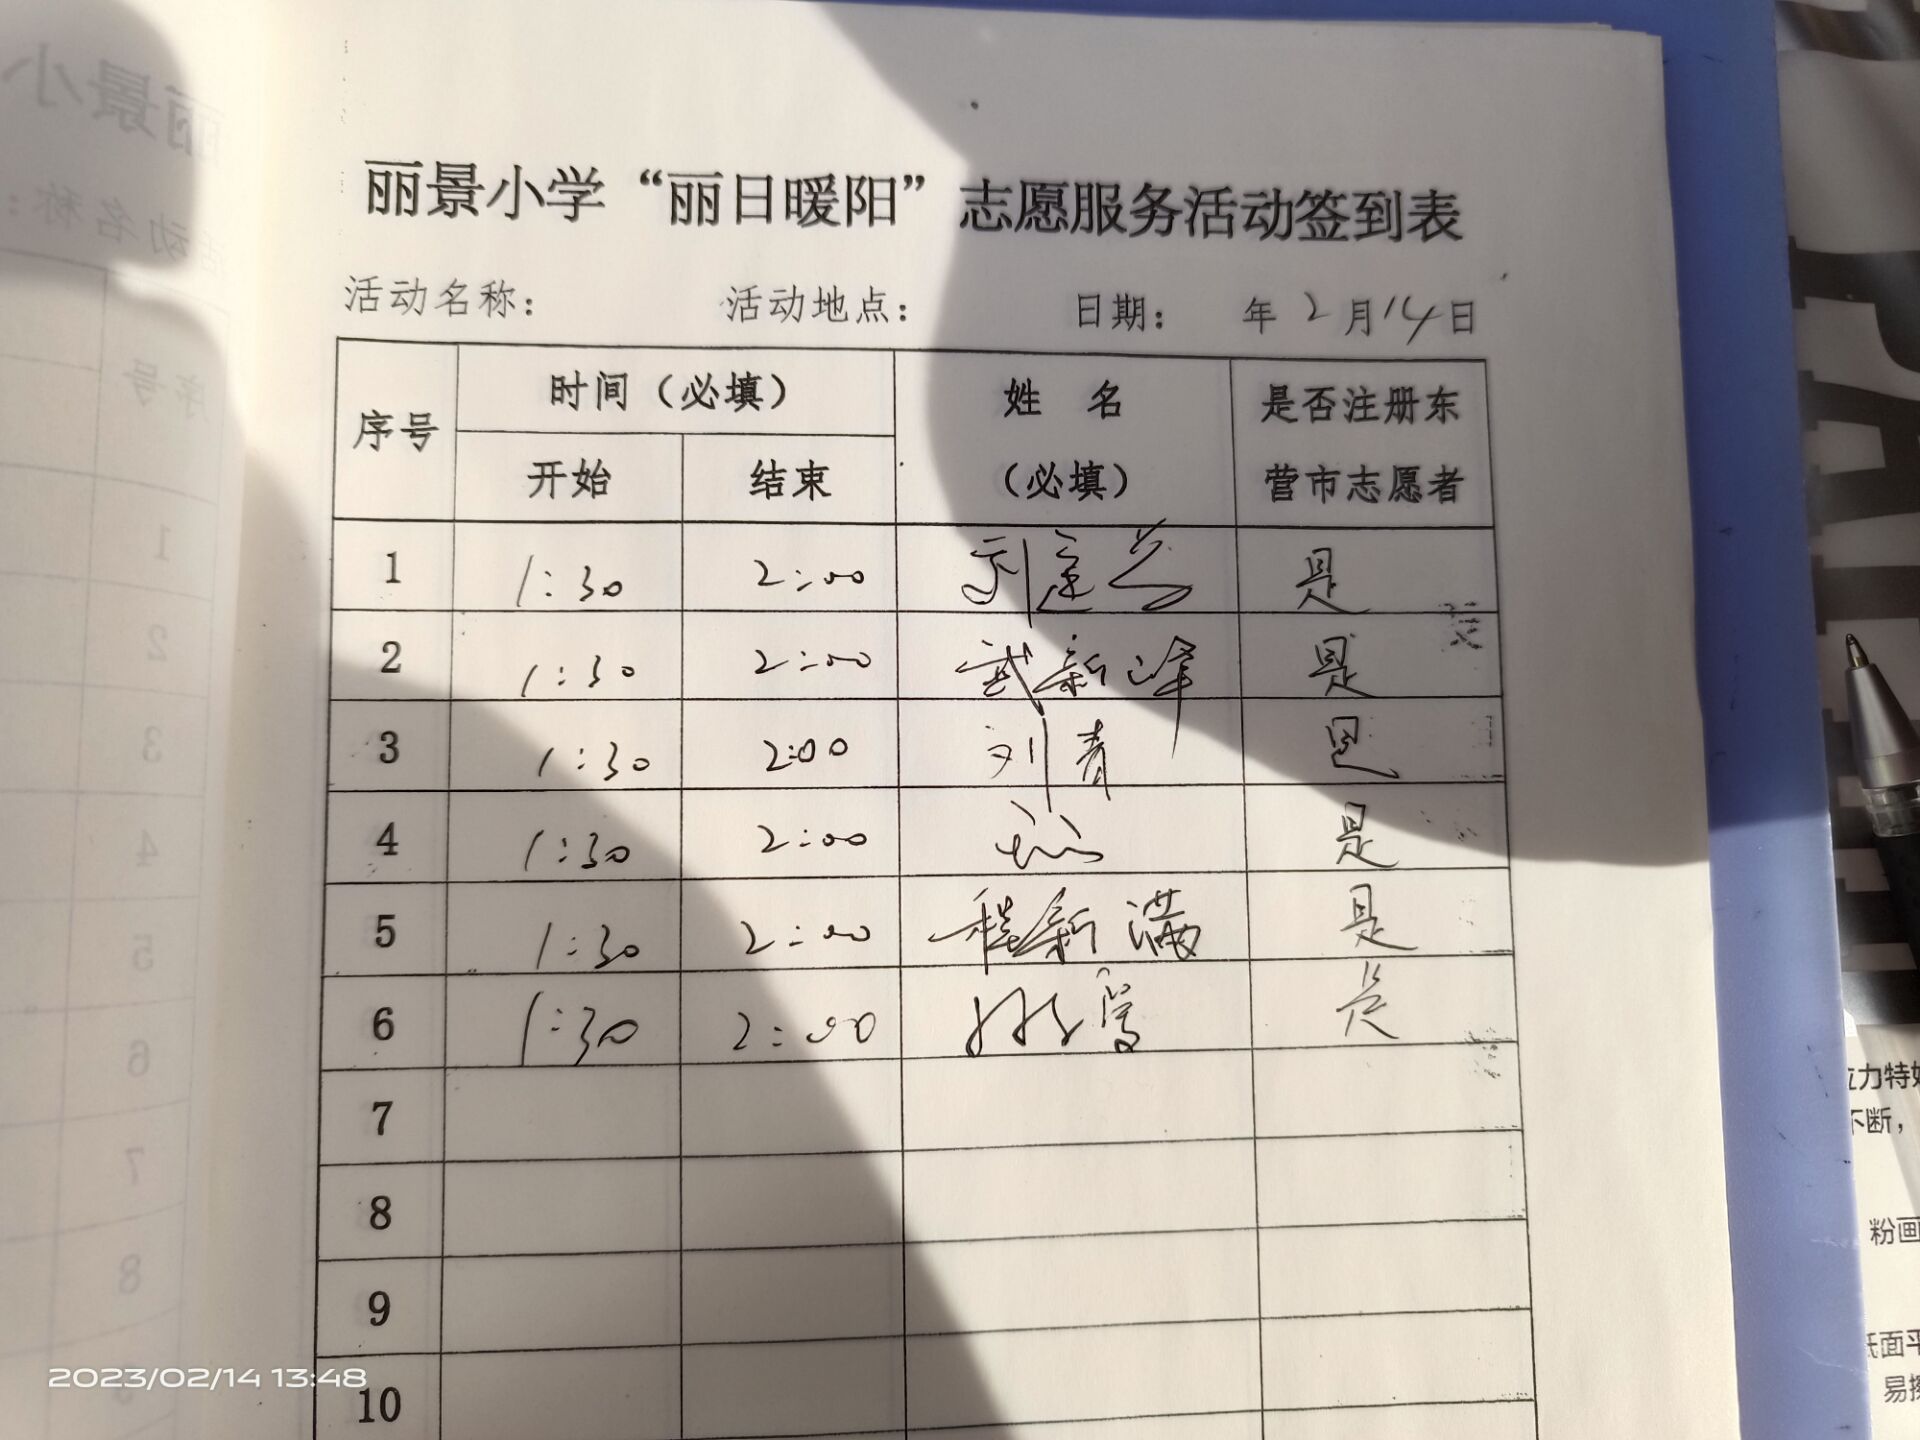 丽景小学“丽日暖阳”志愿服务活动签到表
活动名称： 活动地点： 日期： 年 2 月 14 日
序号 时间（必填） 姓 名 是否注册东
开始 结束 （必填） 营市志愿者
1 1:30 2:00 是
2 1:30 2:00 武新峰 是
3 1:30 2:00 刘青 是
4 1:30 2:00 是
5 1:30 2:00 程新满 是
6 1:30 2:00 是
7
8
9
10
2023/02/14 13:48
力特
不断，
粉画
纸面平
易擦